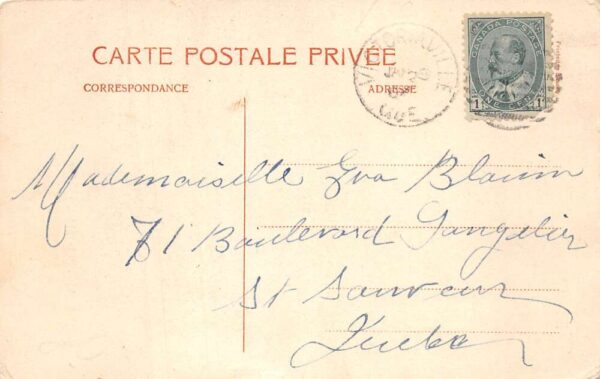 CARTE POSTALE PRIVÉE
CORRESPONDANCE
ADRESSE
VICTORIAVILLE
QUE
CANADA POSTAGE
1 1
Mademoiselle Eva Blouin
71 Boulevard Langelier
St Sauveur
Quebec